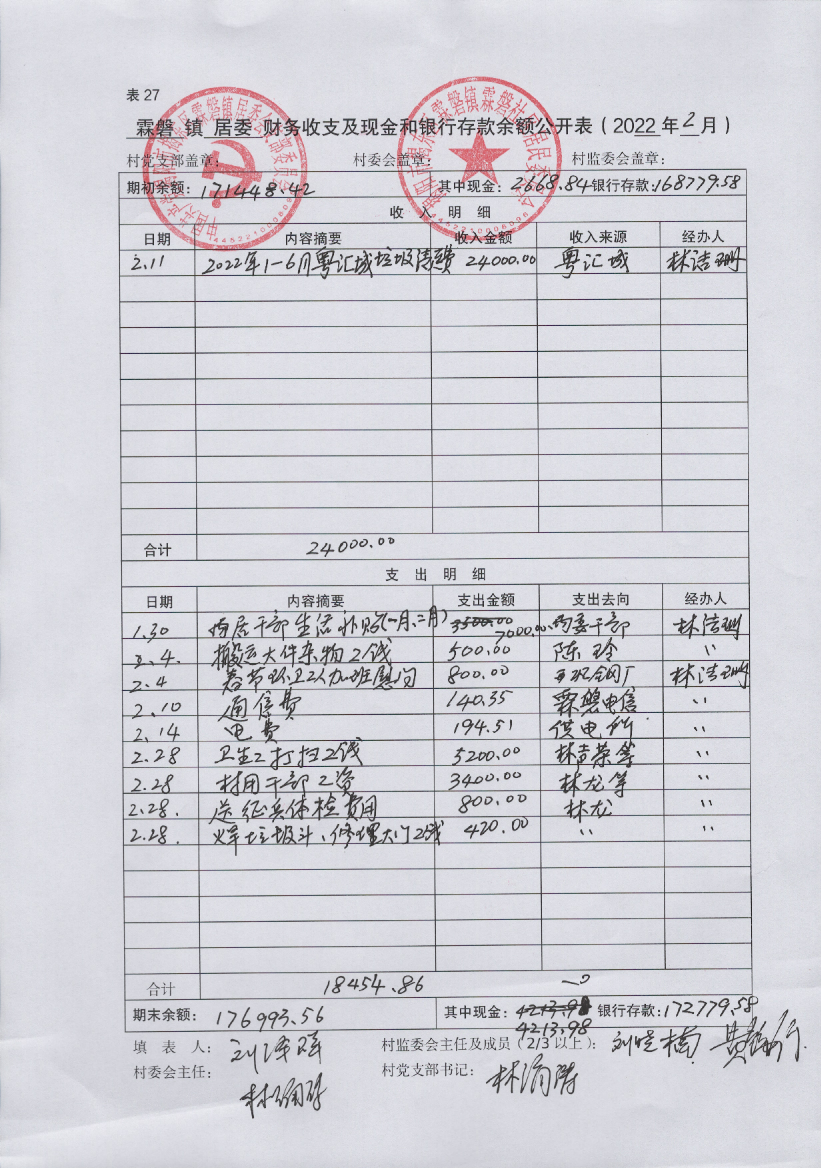 表 27
霖磐 镇 居委 财务收支及现金和银行存款余额公开表（2022年2月）
村党支部盖章： 村委会盖章： 村监委会盖章：
期初余额：171448.42 其中现金：2668.84 银行存款：168779.58
收 入 明 细
日期 内容摘要 收入金额 收入来源 经办人
2.11 2022年1-6月粤汇城垃圾清费 24000.00 粤汇城 林洁珊
合计 24000.00
支 出 明 细
日期 内容摘要 支出金额 支出去向 经办人
1.30 居干部生活补贴(一月、二月) 3500.00 7000.00 委干部 林洁珊
2.4. 搬运大件杂物工钱 500.00 陈玲 〃
2.4 春节环卫工人加班慰问 800.00 林洁珊
2.10 通信费 140.35 霖磐电信 〃
2.14 电费 194.51 供电所 〃
2.28 卫生工打扫工钱 5200.00 林吉荣等 〃
2.28 村用干部工资 3400.00 林龙等 〃
2.28. 送征兵体检费用 800.00 林龙 〃
2.28. 焊垃圾斗、修理大门工钱 420.00 〃 〃
合计 18454.86
期末余额：176993.56 其中现金：4213.98 银行存款：172779.58
4213.98
填 表 人： 村监委会主任及成员（2/3以上）：
村委会主任： 村党支部书记：